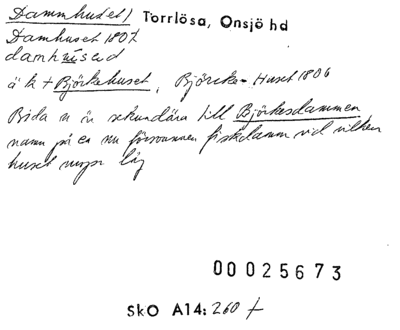 Dammhuset) Torrlösa, Onsjö hd
Damhuset 1807
damhused
ä k + Björkehuset, Björcke-Huset 1806
Båda n är sekundära till Björkesdammen
namn på en nu försvunnen fiskdamm vid vilken
huset urspr låg
00025673
SkO A14: 260 f